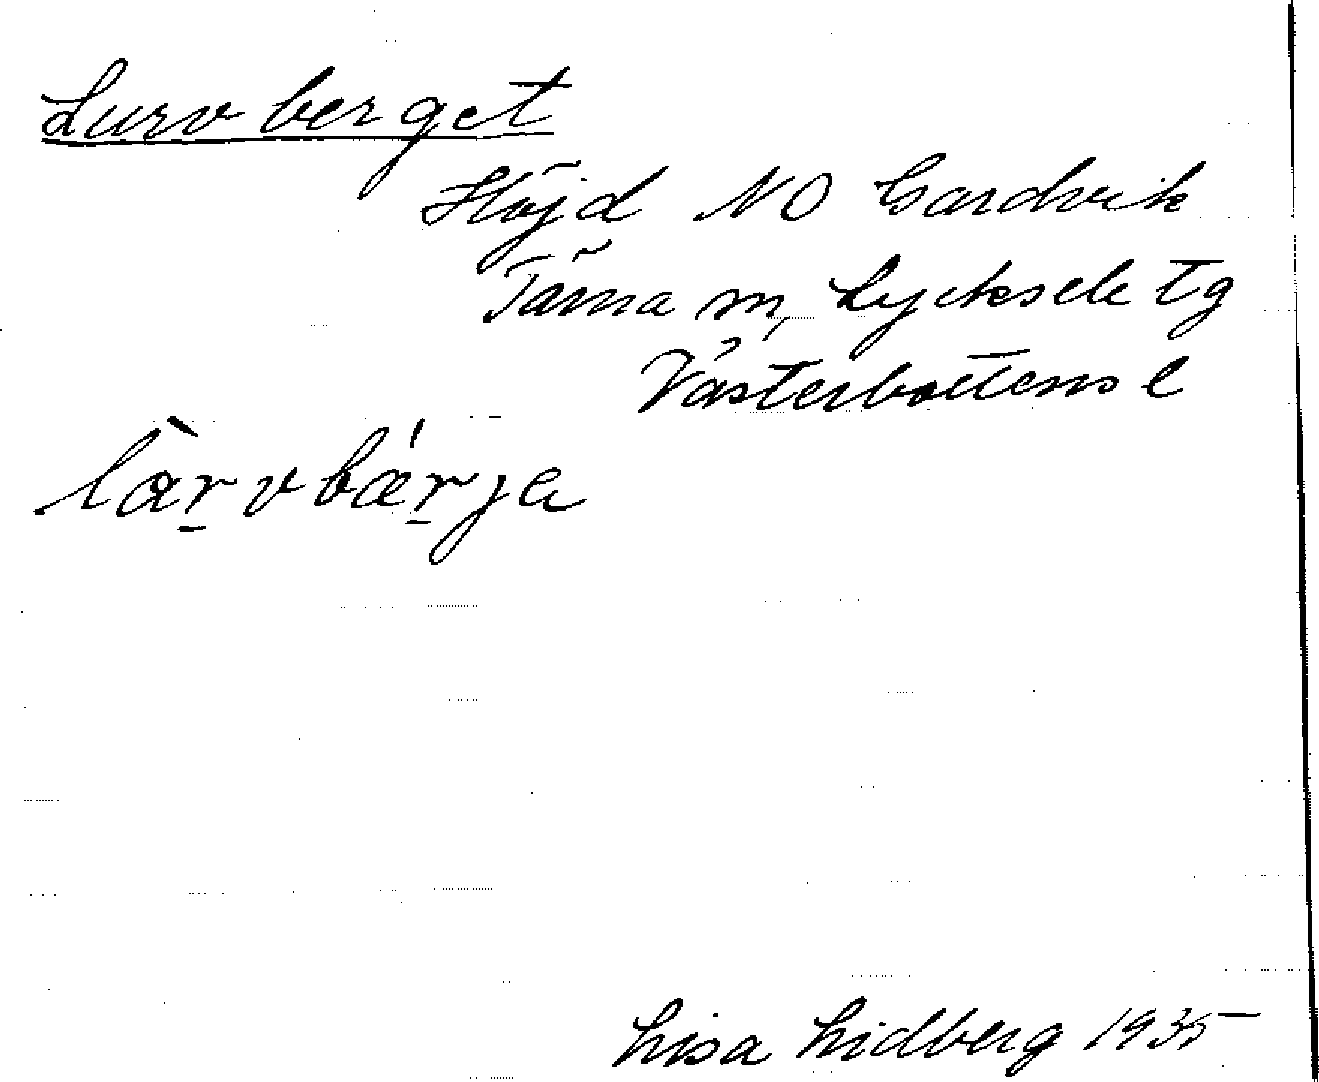 Lurvberget
Höjd NO Gardvik
Tärna sn, Lycksele tg
Västerbottens l
lær̲vbær̲ja
Lisa Lidberg 1935